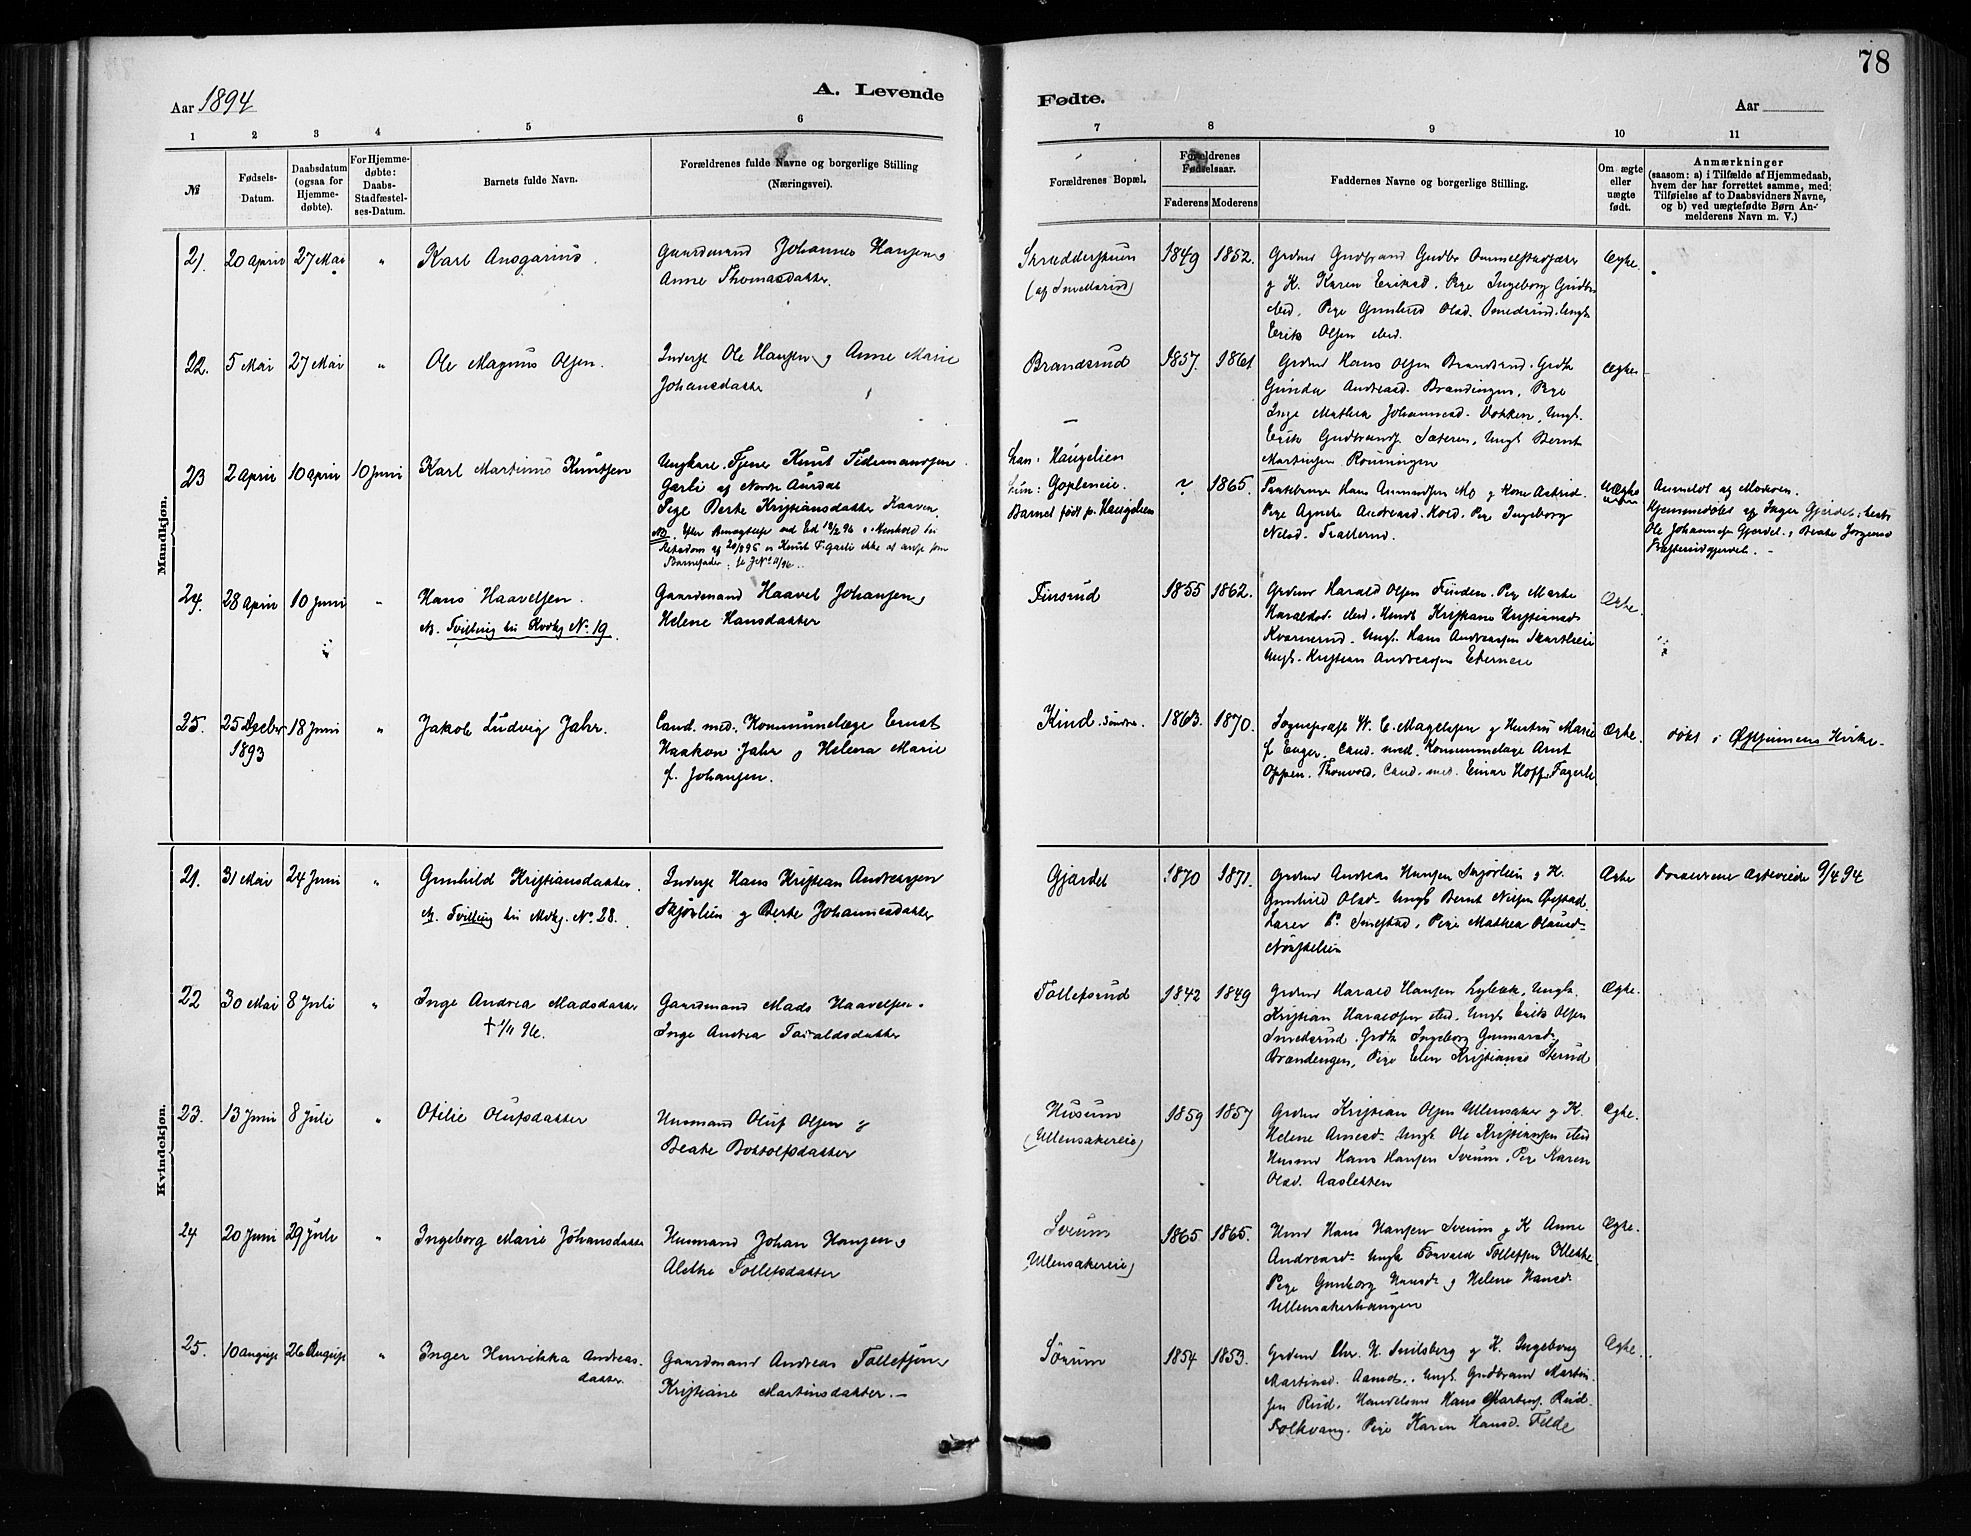 78
Aar 1894
A. Levende
Fødte.
Aar
1 2 3 4 5 6 7 8 9 10 11
№
Fødsels-
Datum.
Daabsdatum
(ogsaa for
Hjemme-
døbte).
For Hjemme-
døbte:
Daabs-
Stadfæstel-
ses-Datum.
Barnets fulde Navn.
Forældrenes fulde Navne og borgerlige Stilling
(Næringsvei).
Forældrenes Bopæl.
Forældrenes
Fødselsaar.
Faderens Moderens
Faddernes Navne og borgerlige Stilling.
Om ægte
eller
uægte
født.
Anmærkninger
(saasom: a) i Tilfælde af Hjemmedaab,
hvem der har forrettet samme, med
Tilføielse af to Daabsvidners Navne,
og b) ved uægtefødte Børn An-
melderens Navn m. V.)
Mandkjøn.
21. 20 April 27 Mai " Karl Ansgarius.
Gaardmand Johannes Hansen og
Anne Thomasdatter.
1849 1852.
g K. Karen Eriksd. Pige Ingeborg Gudbr.
Erik Olsen ibid.
Ægte.
22. 5 Mai 27 Mai " Ole Magnus Olsen.
Inderst Ole Hansen og Anne Marie
Johansdatter
Brandsrud 1857. 1861
Grdmd Hans Olsen Brandsrud. Grdk
Gunda Andreasd. Brændingen, Pige
Inge Mathea Johannesd. Bakken, Ungk.
Erik Gudbrands. Sæteren, Ungk Bernt
Martinsen Rønningen
Ægte
23 2 April 10 April 10 Juni Karl Martinius Knutsen
Ungkarl. Tjener Knut Tidemandsen
Garli af Nordre Aurdal
Pige Berte Kristiansdatter Haaven
han: Haugelien
hun: Gopleneie.
Barnet født p. Haugelien
? 1865.
Pige Agnete Andreasd. Kold. Pige Ingeborg
Nilsd. Trallerud.
Uægte
Anmeldt af Moderen.
Hjemmedøbt af Inger Gjerdet:
24. 28 April 10 Juni " Hans Haavelsen.
NB. Tvilling til Kvdkj No. 19.
Gaardmand Haavel Johansen og
Helene Hansdatter
Finsrud 1855 1862.
Grdmd Harald Olsen Finden. Pige Marte
Haraldsd. ibid. Kristiane Kristiansd.
Kvarnerud. Ungk. Hans Andreassen Skartlieie
Ungk. Kristian Andreassen
Ægte.
25. 25 Decber 1893 18 Juni " Jakob Ludvig Jahr.
Cand. med. Kommunelæge Ernst
Haakon Jahr og Helena Marie
f. Johansen.
Kind søndre 1863. 1870.
Sogneprest W. C. Magelssen og Hustru Marie
f. Enger, Cand. med. Kommunelæge Arnt
Oppen. Thonvold. Cand. med. Einar Hoff. Fagerli
Ægte.
døbt i Østsinnens Kirke.
Kvindekjøn.
21. 31 Mai 24 Juni " Gunhild Kristiansdatter.
NB. Tvilling til Mdkj. No. 28.
Inderst Hans Kristian Andreassen
Skjørlien og Berte Johannesdatter
Gjærdet 1870 1871.
Grdmd Andreas Hansen Skjørlien og K.
Gunhild Olsd. Ungk Bernt Nilsen Øistad
Lærer P. Smestad, Pige Mathea Olausd.
Ægte
Forældrene ægteviede 9/4 94
22 30 Mai 8 Juli " Inge Andrea Madsdatter
† 1/11 96.
Gaardmand Mads Haavelsen.
Inge Andrea Taraldsdatter
Tollefsrud 1842 1849
Grdmd Harald Hansen Lybæk, Ungk.
Kristian Haraldsen ibid, Ungk Erik Olsen
Smedsrud. Grdk Ingeborg Gunnarsd.
Brændengen, Pige Elen Kristiansd Sterud
Ægte.
23. 13 Juni 8 Juli " Otilie Olufsdatter
Husmand Oluf Olsen og
Beate Bottolfsdatter
Husum
(Ullensakereie)
1859 1857
Grdmd Kristian Olsen Ullensaker og K.
Helene Arnesd. Ungk Ole Kristiansen ibid
Husmd Hans Hansen Sveum, Pige Karen
Olsd. Aasletten
Ægte.
24 20 Juni 29 Juli " Ingeborg Marie Johansdatter
Husmand Johan Hansen og
Alethe Tollefsdatter
Sveum
(Ullensakereie)
1865 1865.
Husmd Hans Hansen Sveum og K Anne
Andreasd. Ungk Torvald Tollefsen Klekke
Pige Gunborg Hansd. og Helene Hansd.
Ullensakerhaugen
Ægte.
25. 10 August 26 August " Inger Henrikka Andreas-
datter.
Gaardmand Andreas Tollefsen og
Kristiane Martinsdatter. —
Sørum 1854 1853.
Grdmd Chr. H. Snilsberg og K. Ingeborg
Martinsd. Aamdt. Ungk Gudbrand Martin-
sen Rud. Handelsmd Hans Martins. Rud.
Folkvang. Pige Karen Hansd. Felde
Ægte.